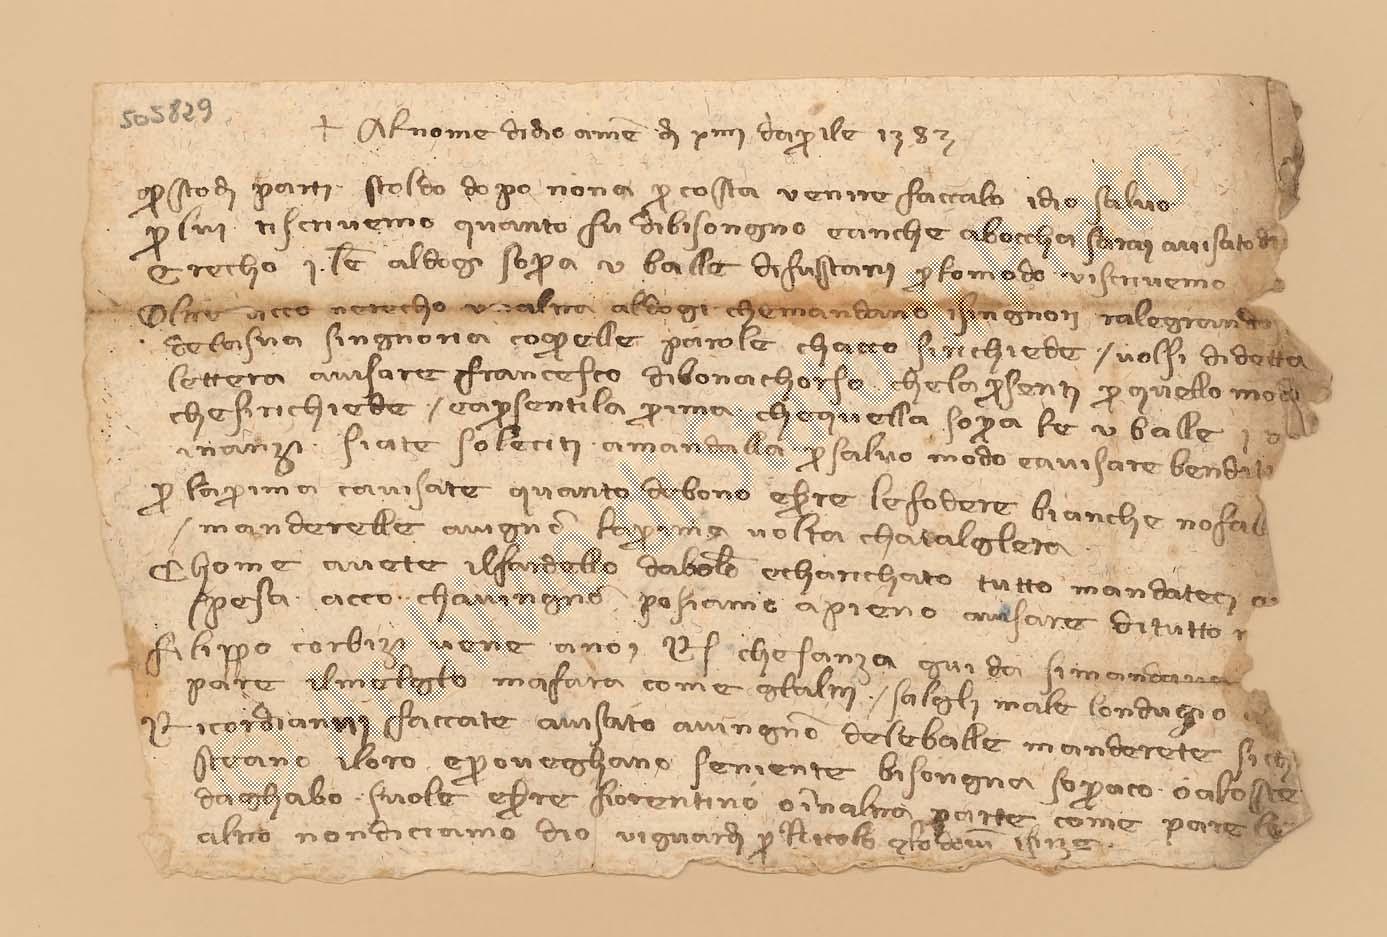 505829
+ Al nome didio amē dì xiiii daprile 1383
questodì partì stoldo dopo nona p costa venire faccalo idio salvo
p lui tiscrivemo quanto fu dibisongno eanche aboccha sarai avisato di
E recho i.a lr̄a aldogi sopra v balle difustani p lo modo viscrivemo
Oltre acco nerecho un altra aldogi chemandano isingnori ralegrando
delasua singnoria coquelle parole chacco sirichiede / volsi di detta
lettera avisare francesco dibonachorso chelapresenti p quello modo
chesirichiede / eapresentila prima chequella sopra le v balle
inanzi siate soleciti amandalla p salvo modo eavisare
p laprima cavisate quanto debono esere lefodere bianche nofal
/ manderelle avignō laprima volta
Chome avete ilfardello echarichato tutto mandateci
spesa acco chavingnō posiamo apieno avisare ditutto
filippo corbizi vene anoi chesanza guida simandava
pare ilmeglo mafara come glaltri / salgli male londugio
Ricordianvi facciate avisato avingnō deleballe manderete sichi
steano iloro eproveghano seniente bisongna sopracco
daghabo suole esere fiorentino oinaltra parte come pare
altro nondiciamo dio viguardi p Nicolo